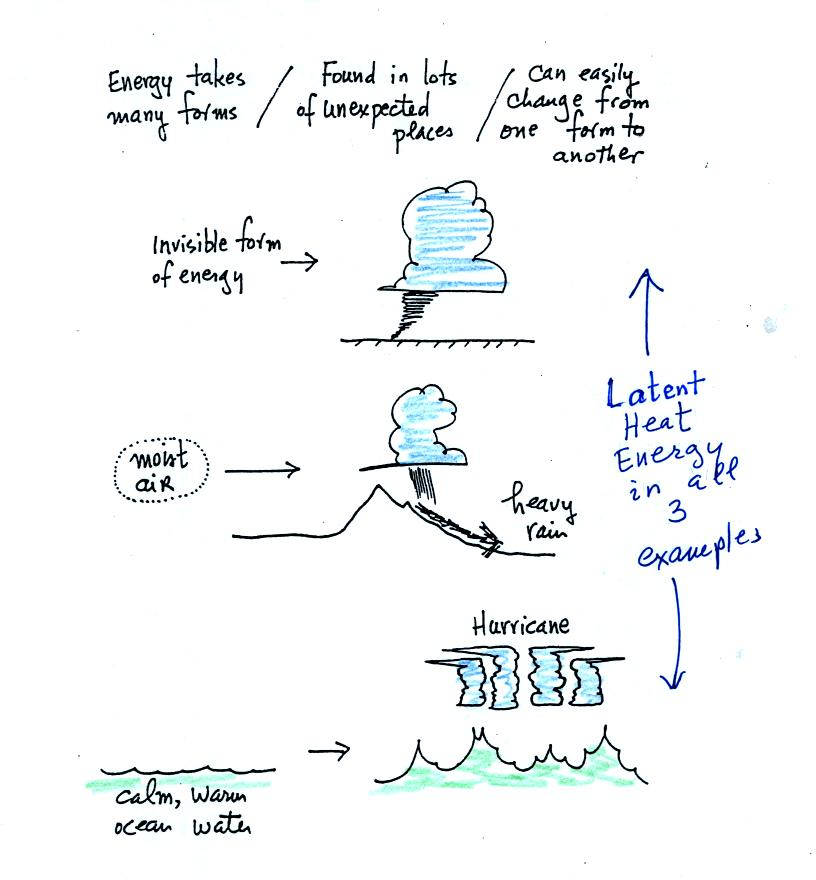 Energy takes
many forms /
Found in lots
of unexpected
places /
Can easily
change from
one form to
another
Invisible form
of energy
moist
air
heavy
rain
Latent
Heat
Energy
in all
3
examples
Hurricane
calm, warm
ocean water